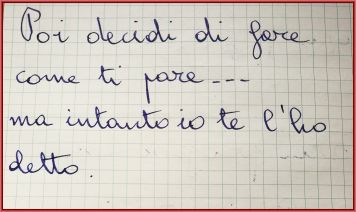 Poi decidi di fare
come ti pare ---
ma intanto io te l'ho
detto.